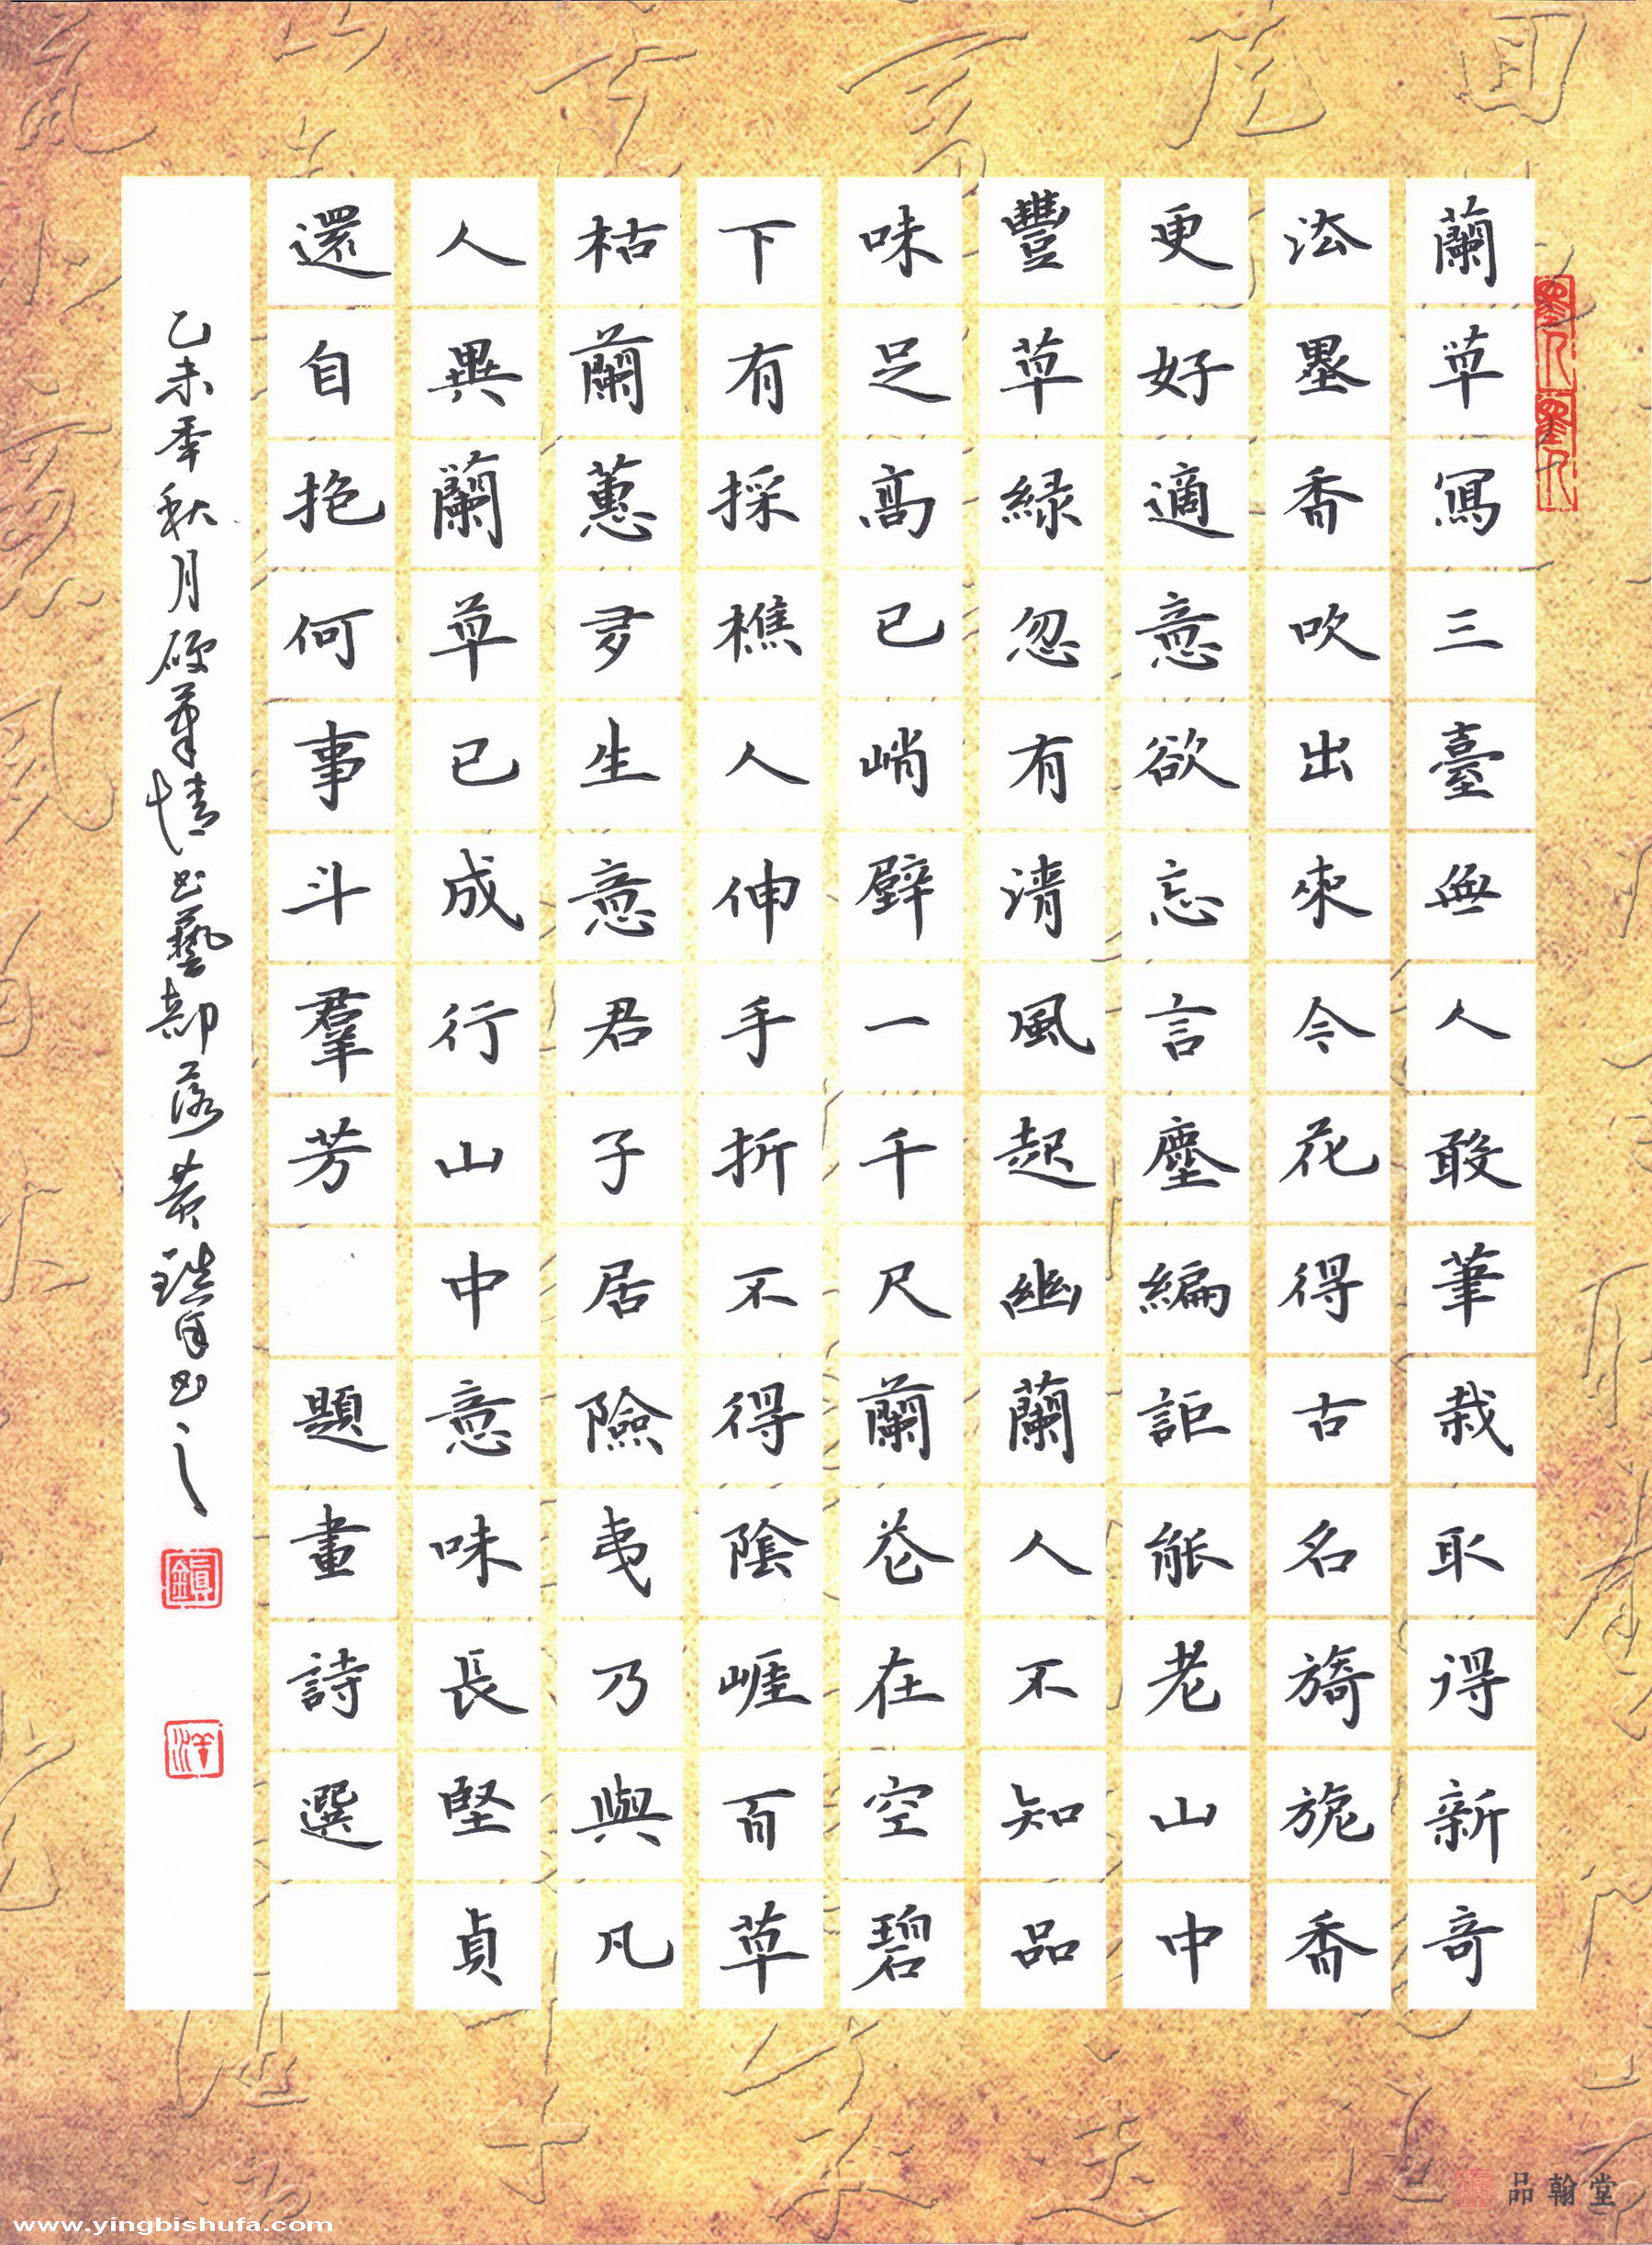 蘭草寫三臺無人敢筆栽取得新奇
法墨香吹出來令花得古名旖旎香
更好適意欲忘言塵編詎能老山中
豐草綠忽有清風起幽蘭人不知品
味足高已峭壁一千尺蘭花在空碧
下有採樵人伸手折不得陰崖百草
枯蘭蕙多生意君子居險夷乃與凡
人異蘭草已成行山中意味長堅貞
還自抱何事斗羣芳 題畫詩選
乙未秊秋月硬筆情书藝部落黃鎮洋书之
鎮
洋
品翰堂
www.yingbishufa.com